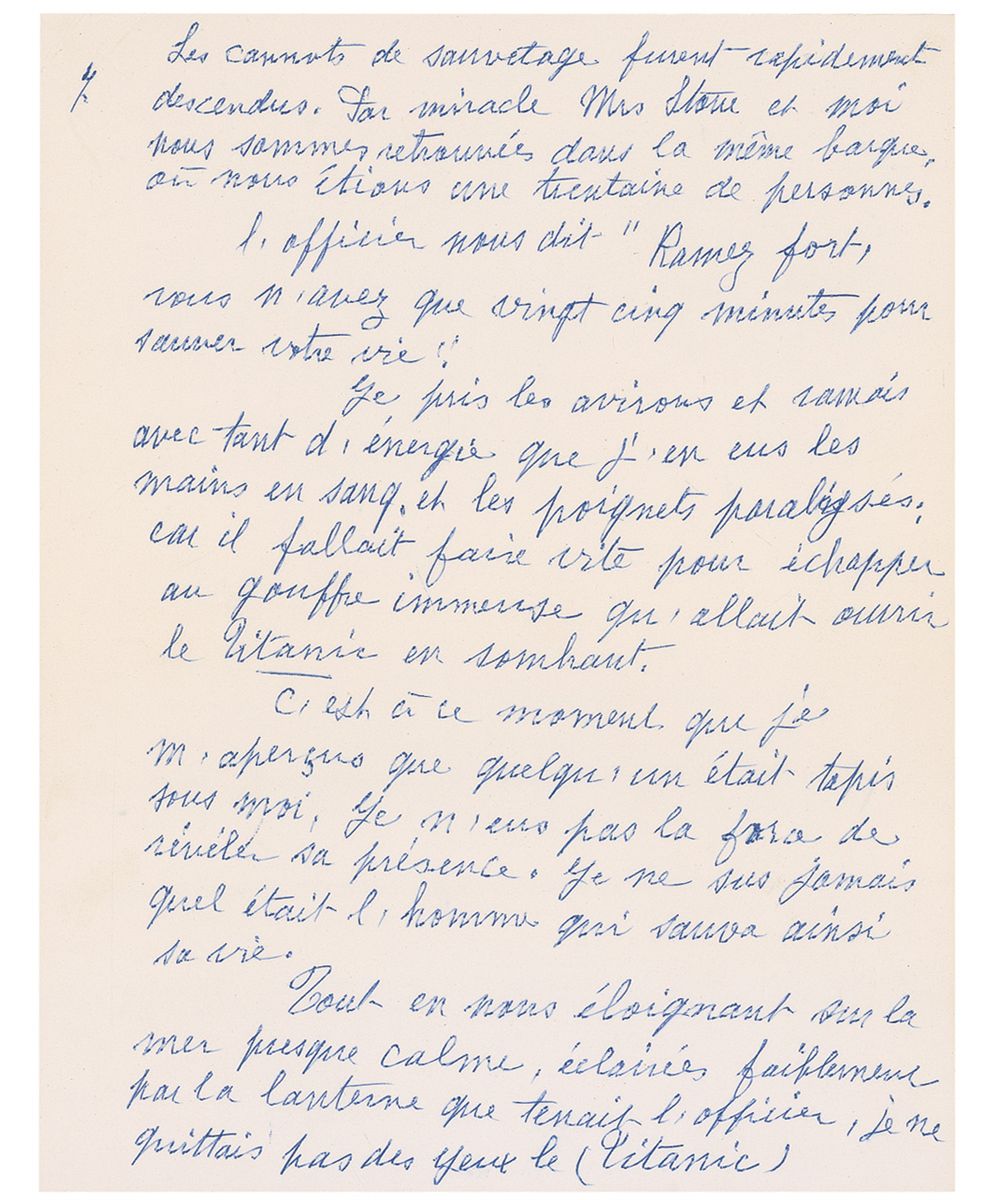 4.
Les cannots de sauvetage furent rapidement
descendus. Par miracle Mrs Stone et moi
nous sommes retrouvées dans la même barque,
où nous étions une trentaine de personnes.
l'officier nous dit " Ramez fort,
vous n'avez que vingt cinq minutes pour
sauver votre vie "
Je pris les avirons et ramais
avec tant d'énergie que j'en eus les
mains en sang et les poignets paralysés;
car il fallait faire vite pour échapper
au gouffre immense qu'allait ouvrir
le Titanic en sombrant.
C'est à ce moment que je
m'aperçus que quelqu'un était tapis
sous moi, Je n'eus pas la force de
révéler sa présence. Je ne sus jamais
quel était l'homme qui sauva ainsi
sa vie.
Tout en nous éloignant sur la
mer presque calme, éclairées faiblement
par la lanterne que tenait l'officier, je ne
quittais pas des yeux le (Titanic)